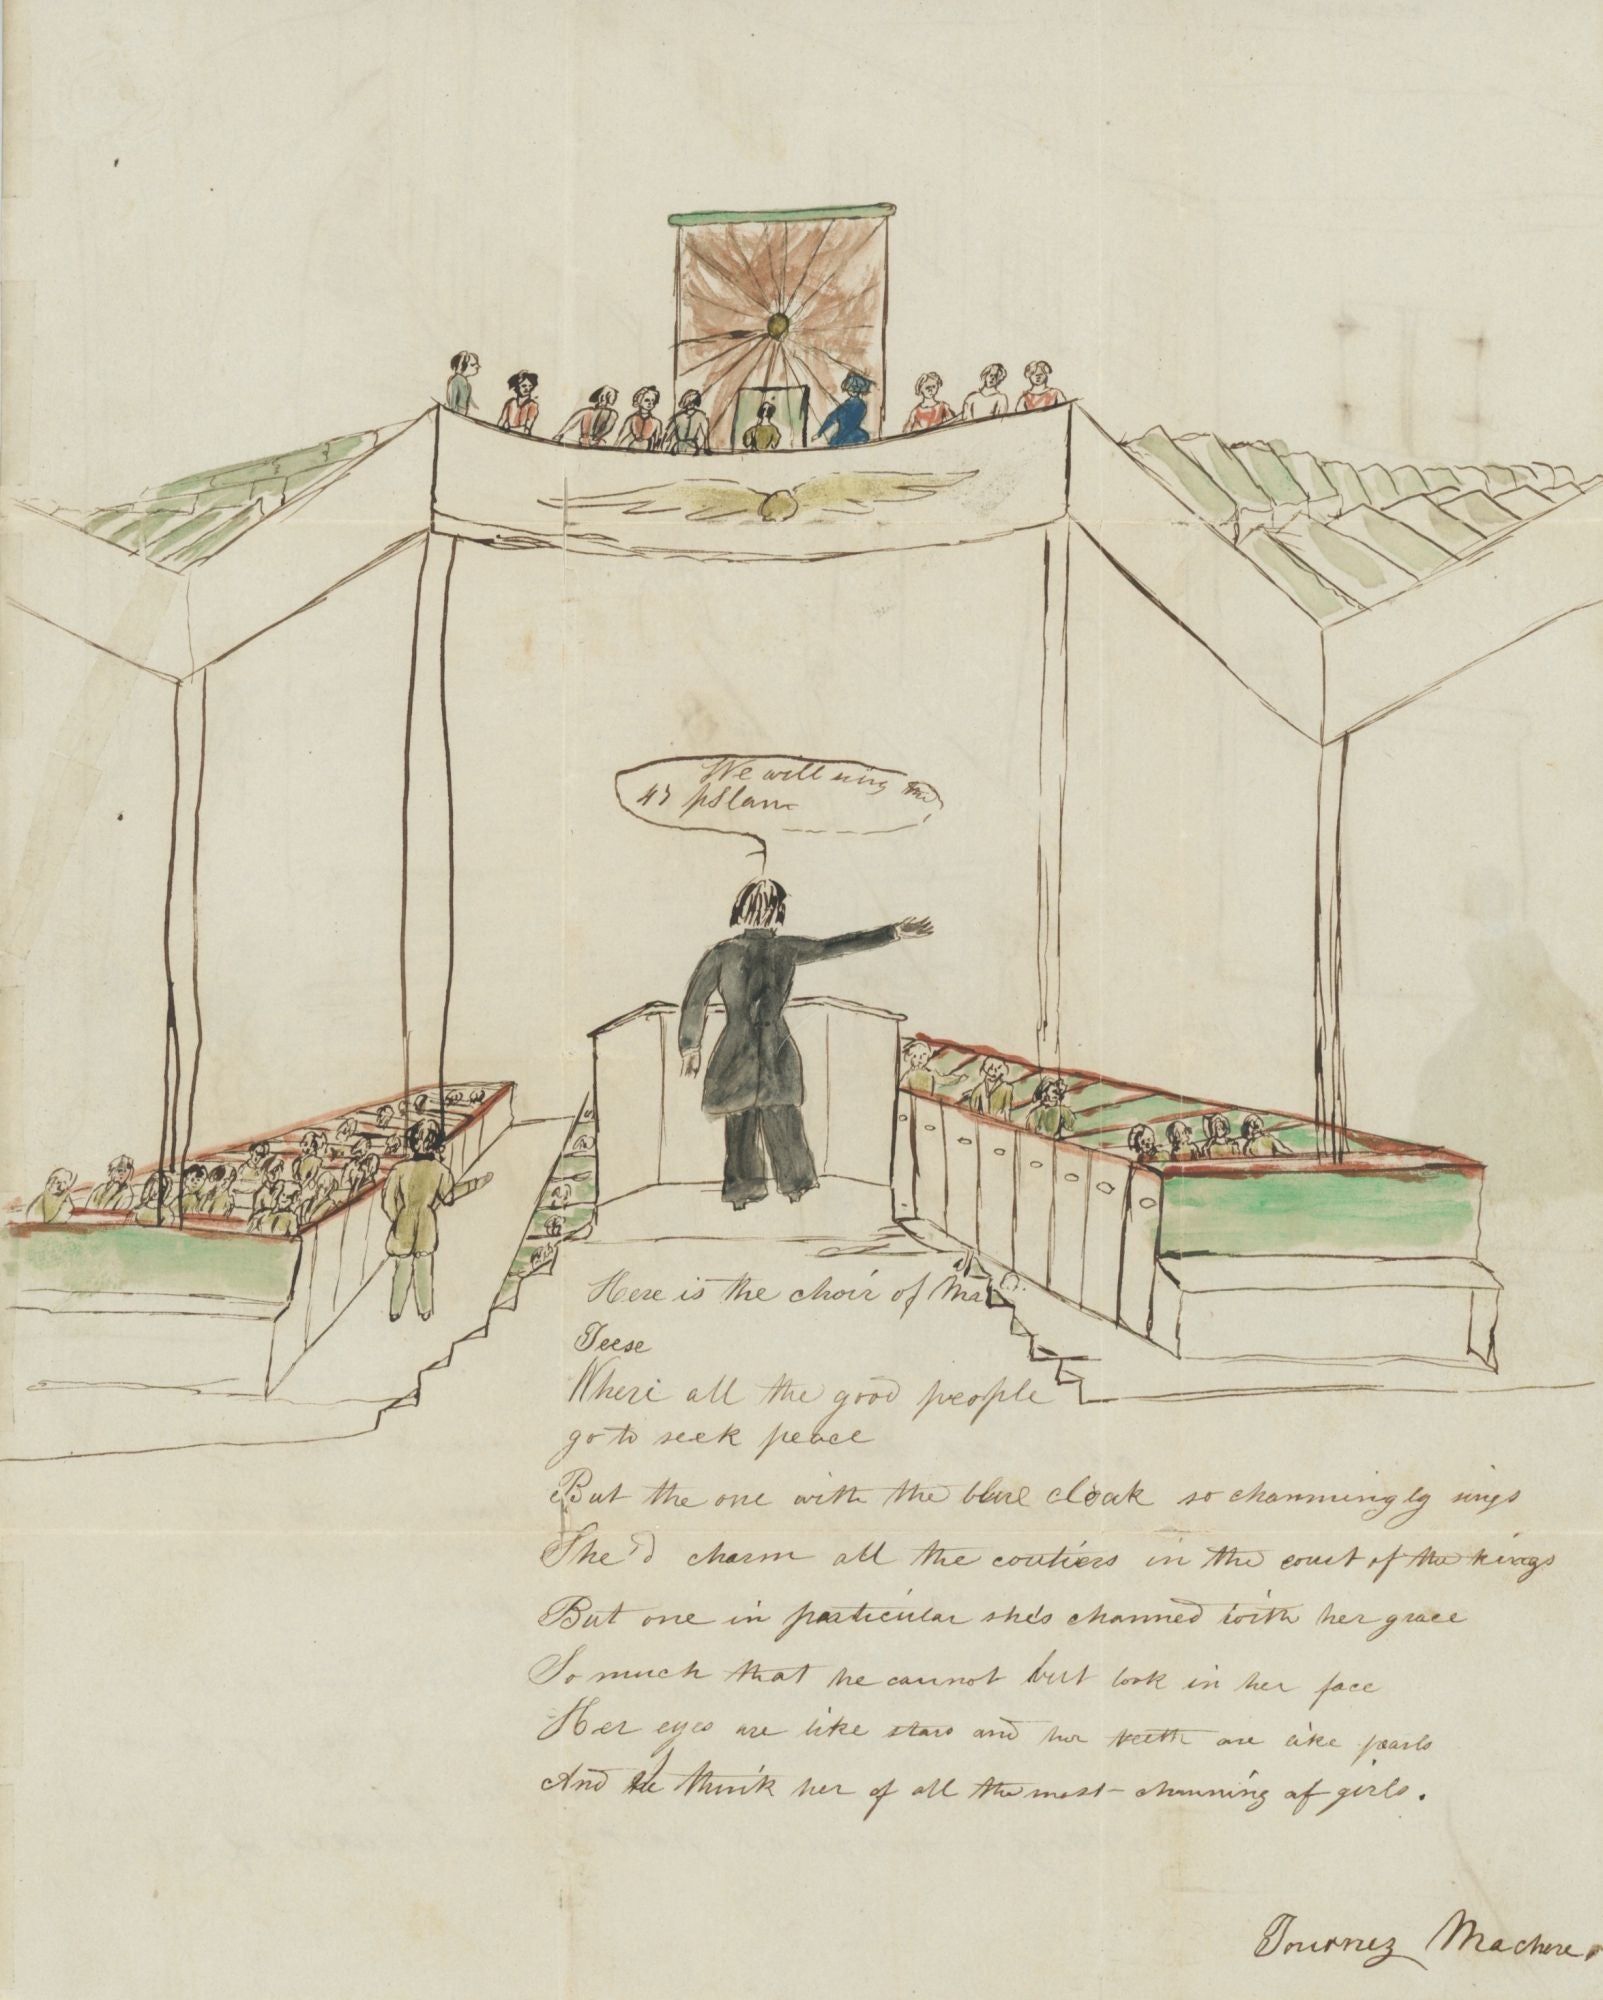 We will sing the
47 pSlam
Here is the choir of
Teese
Where all the good people
go to seek peace
But the one with the blue cloak so charmingly sings
She'd charm all the coutiers in the court of the kings
But one in particular she's charmed with her grace
So much that he cannot but look in her face
Her eyes are like stars and her teeth are like pearls
And he think her of all the most charming of girls.
Tournez Machere